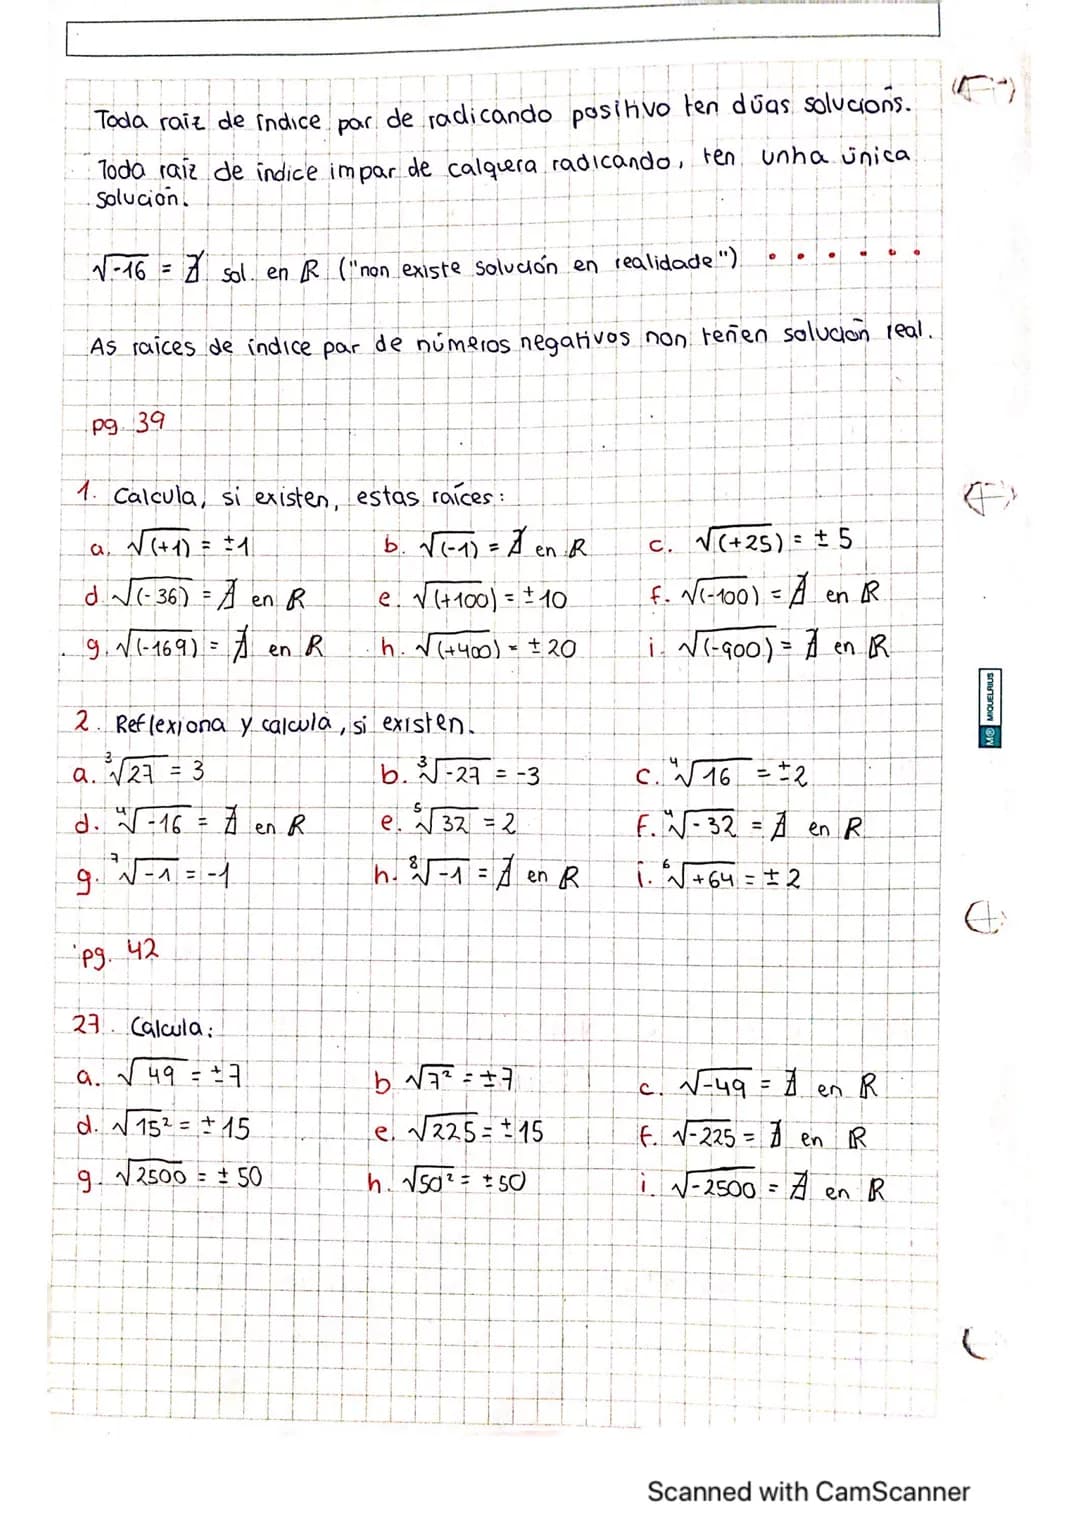 Toda raíz de índice par de radicando positivo ten dúas solucións.
Toda raíz de índice impar de calquera radicando, ten unha única
solución.
√-16 = ∄ sol. en R ("non existe solución en realidade")
As raíces de índice par de números negativos non teñen solución real.
pg. 39
1. Calcula, si existen, estas raíces:
a. √(+1) = ±1 b. √(-1) = ∄ en R c. √(+25) = ± 5
d. √(-36) = ∄ en R e. √(+100) = ± 10 f. √(-100) = ∄ en R
g. √(-169) = ∄ en R h. √(+400) = ± 20 i. √(-900) = ∄ en R
2. Reflexiona y calcula, si existen.
a. ³√27 = 3 b. ³√-27 = -3 c. ⁴√16 = ±2
d. ⁴√-16 = ∄ en R e. ⁵√32 = 2 f. ⁴√-32 = ∄ en R
g. ⁷√-1 = -1 h. ⁸√-1 = ∄ en R i. ⁶√+64 = ± 2
pg. 42
27. Calcula:
a. √49 = ±7 b √7² = ±7 c. √-49 = ∄ en R
d. √15² = ± 15 e. √225 = ±15 f. √-225 = ∄ en R
g. √2500 = ± 50 h. √50² = ±50 i. √-2500 = ∄ en R
M® MIQUELRIUS
Scanned with CamScanner